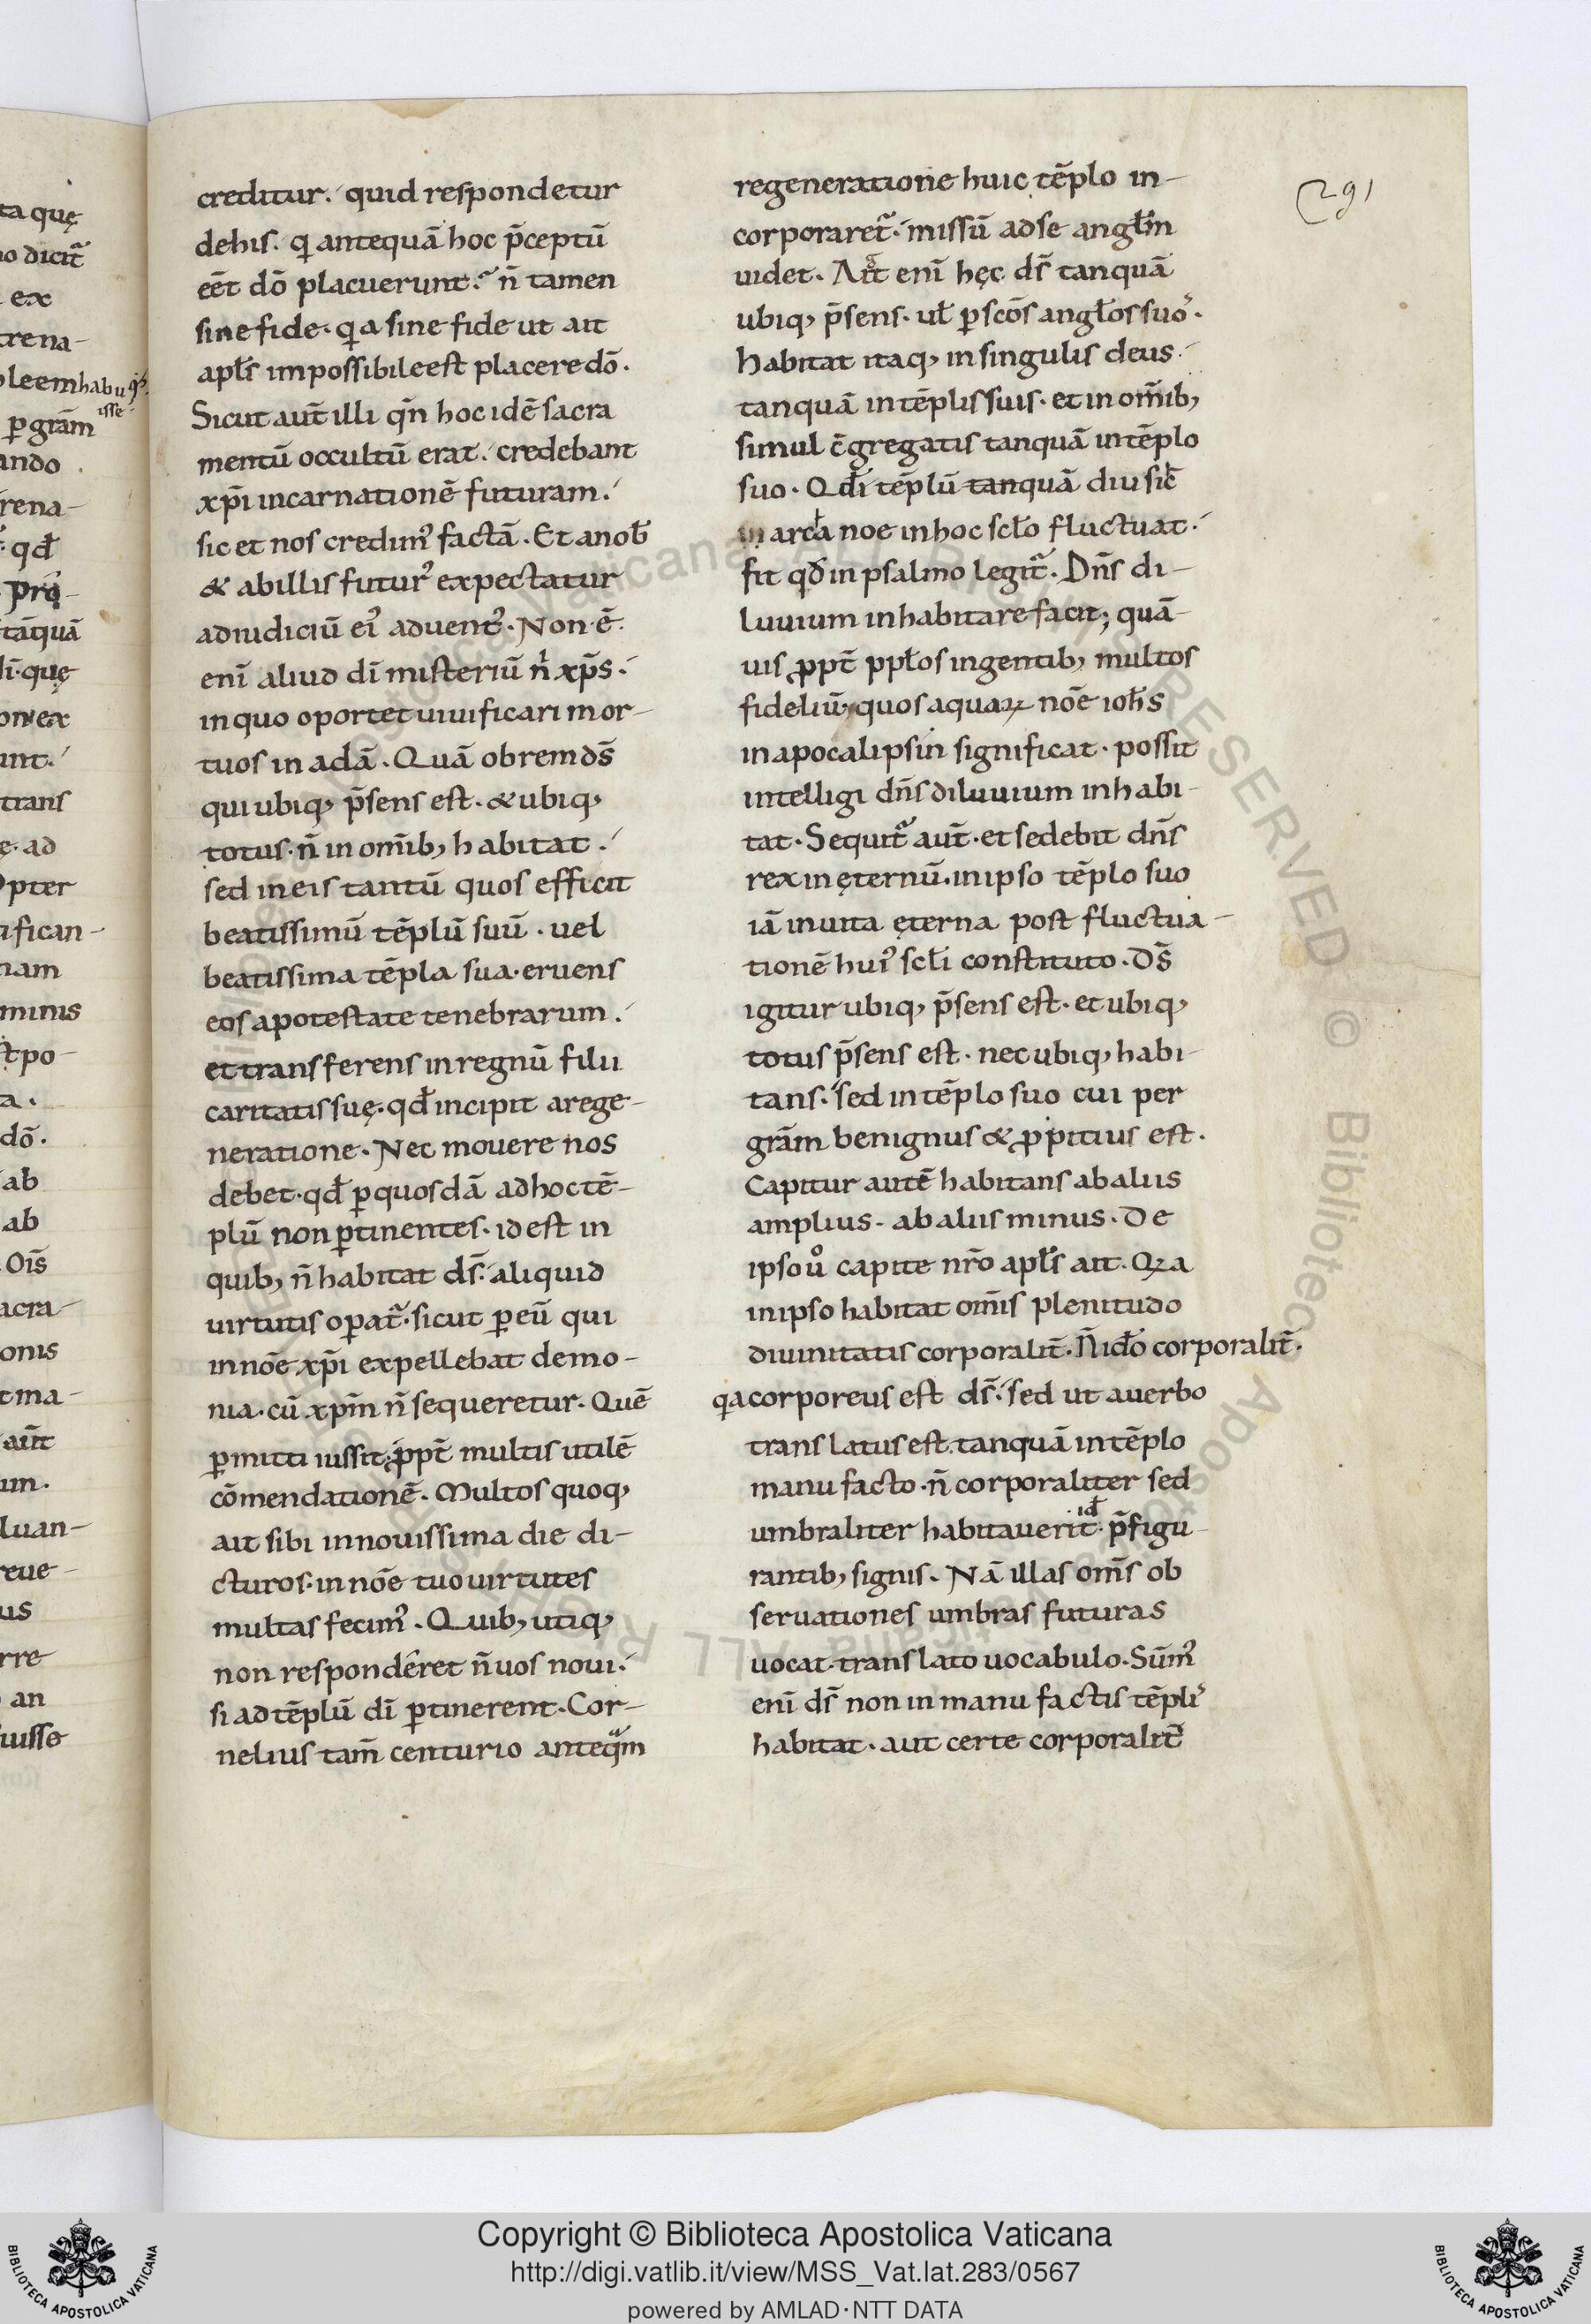 creditur. quid respondetur
dehis. q̇ antequā hoc p̄ceptū
eēt dō placuerunt. n̄ tamen
sine fide. q̇a sine fide ut ait
apłs impossibile est placere dō.
Sicut aut̄ illi qn̄ hoc idē sacra
mentū occultū erat. credebant
xp̄i incarnationē futuram.
sic et nos credim᾿ factā. Et a nob̄
& ab illis futur᾿ expectatur
ad iudiciū ei᾿ aduent᾿. Non ē
enī aliud dī misteriū n̄ xp̄s.
in quo oportet uiuificari mor-
tuos in adā. Quā ob rem ds̄
qui ubiq, p̄sens est. & ubiq,
totus. n̄ in om̄ib, habitat.
sed in eis tantū quos efficit
beatissimū tēplū suū. uel
beatissima tēpla sua. eruens
eos a potestate tenebrarum.
et transferens in regnū filii
caritatis suę. qđ incipit a rege-
neratione. Nec mouere nos
debet. qđ ꝑ quosdā ad hoc tē-
plū non ꝑtinentes. id est in
quib, n̄ habitat ds̄. aliquid
uirtutis oꝑat᷑. sicut ꝑ eū qui
in nōe xp̄i expellebat demo-
nia. cū xp̄m n̄ sequeretur. Quē
ꝑmitti iussit. ꝓpt̄ multis utilē
cōmendationē. Multos quoq,
ait sibi in nouissima die di-
cturos. in nōe tuo uirtutes
multas fecim᾿. Quib, utiq,
non responderet n̄ uos noui.
si ad tēplū dī ꝑtinerent. Cor-
nelius tam̄ centurio anteqm
regeneratione huic tēplo in-
corporaret᷑. missū ad se angłm
uidet. Ait enī hęc ds̄ tanquā
ubiq, p̄sens. uł ꝑ scōs angłos suo᾿.
habitat itaq, in singulis deus.
tanquā in tēplis suis. et in om̄ib,
simul c̄gregatis tanquā in tēplo
suo. Qđ tēplū tanquā diu sic̄
in arca noe in hoc scło fluctuat.
fit qđ in psalmo legit᷑. Dn̄s di-
luuium inhabitare facit; quā-
uis ꝓpt̄ ppłos in gentib, multos
fideliū quos aquaꝝ nōe ioħs
in apocalipsin significat. possit
intelligi dn̄s diluuium inhabi-
tat. Sequit᷑ aut̄. et sedebit dn̄s
rex in ęternū. in ipso tēplo suo
iā in uita ęterna post fluctua-
tionē hui᾿ scłi constituto. Ds̄
igitur ubiq, p̄sens est. et ubiq,
totus p̄sens est. nec ubiq, habi-
tans. sed in tēplo suo cui per
grām benignus & ꝓpitius est.
Capitur autē habitans ab aliis
amplius. ab aliis minus. De
ipso ů capite nr̄o apłs ait. Qꝛa
in ipso habitat om̄is plenitudo
diuinitatis corporalit̄. N̄ idō corporalit̄.
q̇a corporeus est ds̄. sed ut a uerbo
translatus est. tanquā in tēplo
manu facto. n̄ corporaliter sed
umbraliter habitauerit. id̄ p̄figu-
rantib, signis. Nā illas om̄s ob
seruationes umbras futuras
uocat. translato uocabulo. Sūm᾿
enī ds̄ non in manu factis tēpli᾿
habitat. aut certe corporalit̄
291
Copyright © Biblioteca Apostolica Vaticana
http://digi.vatlib.it/view/MSS_Vat.lat.283/0567
powered by AMLAD·NTT DATA
BIBLIOTECA APOSTOLICA VATICANA
BIBLIOTECA APOSTOLICA VATICANA